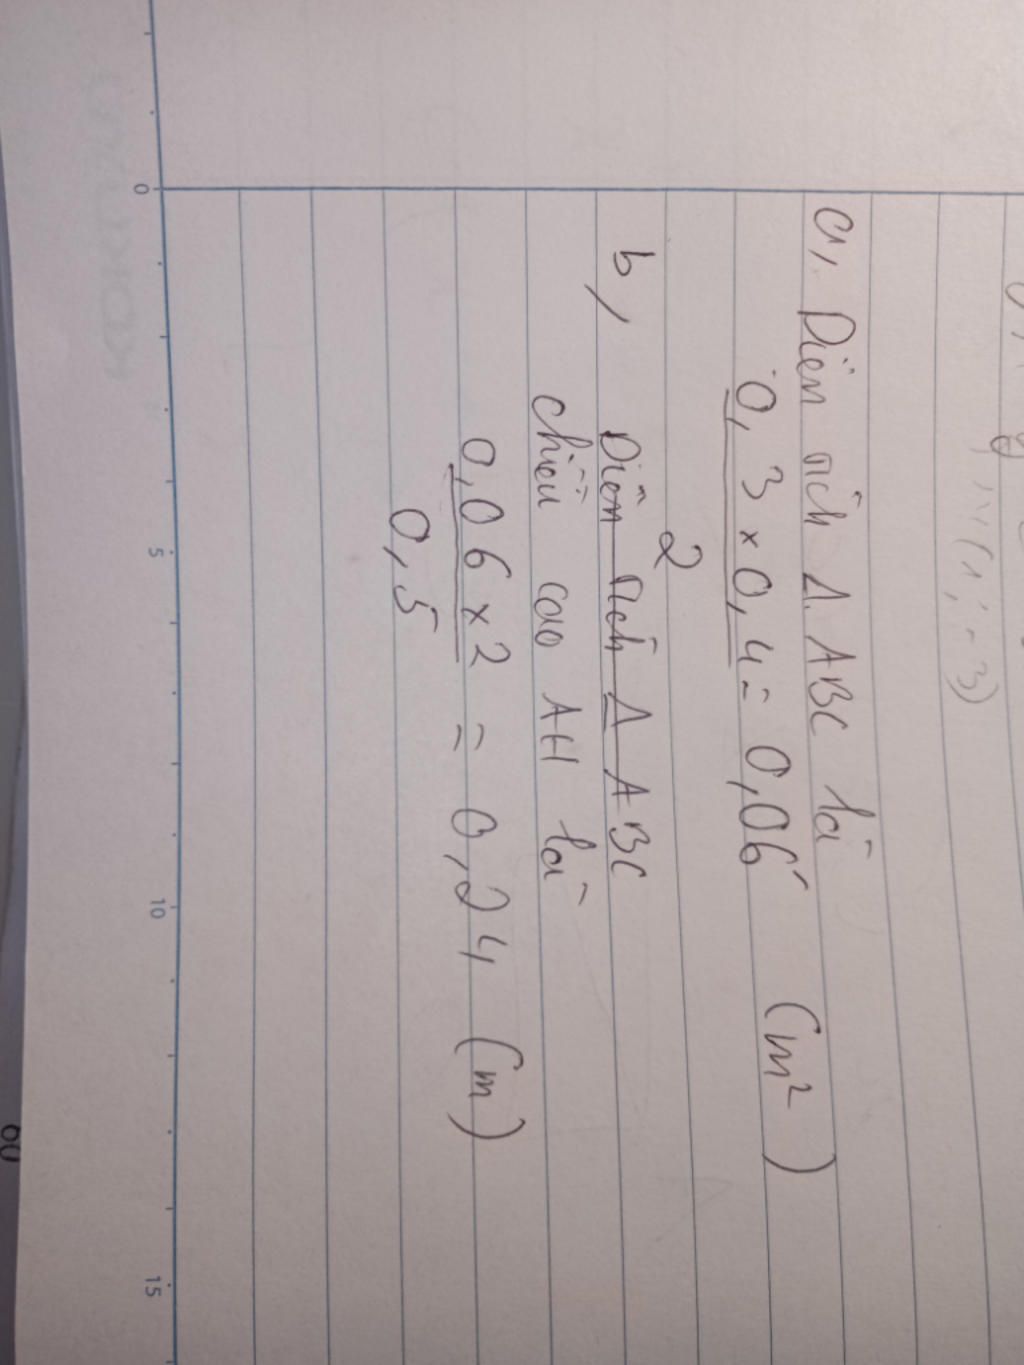 a, Diện tích Δ ABC là
0,3 × 0,4 = 0,06 (m²)
2
b, Diện tích Δ ABC
chiều cao AH là
0,06 × 2 = 0,24 (m)
0,5
0
5
10
15
60